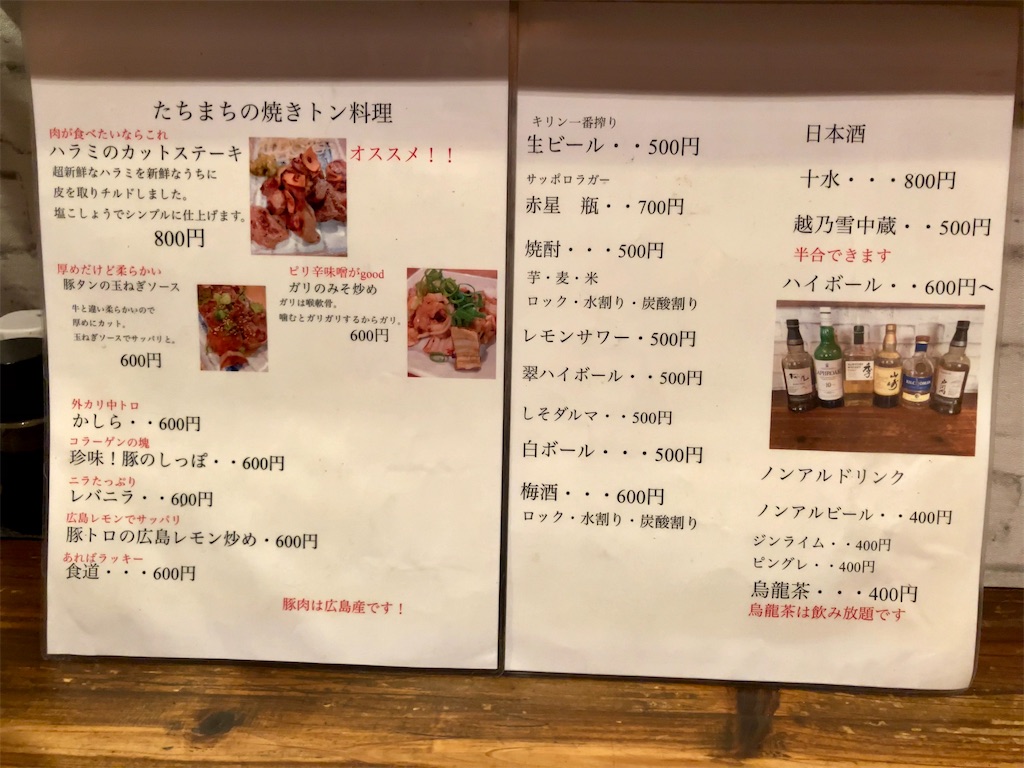 たちまちの焼きトン料理
肉が食べたいならこれ
ハラミのカットステーキ
オススメ！！
超新鮮なハラミを新鮮なうちに
皮を取りチルドしました。
塩こしょうでシンプルに仕上げます。
800円
厚めだけど柔らかい
豚タンの玉ねぎソース
牛と違い柔らかいので
厚めにカット。
玉ねぎソースでサッパリと。
600円
ピリ辛味噌がgood
ガリのみそ炒め
ガリは喉軟骨。
噛むとガリガリするからガリ。
600円
外カリ中トロ
かしら・・600円
コラーゲンの塊
珍味！豚のしっぽ・・600円
ニラたっぷり
レバニラ・・600円
広島レモンでサッパリ
豚トロの広島レモン炒め・600円
あればラッキー
食道・・・600円
豚肉は広島産です！
キリン一番搾り
生ビール・・500円
サッポロラガー
赤星　瓶・・700円
焼酎・・・500円
芋・麦・米
ロック・水割り・炭酸割り
レモンサワー・500円
翠ハイボール・・500円
しそダルマ・・500円
白ボール・・・500円
梅酒・・・600円
ロック・水割り・炭酸割り
日本酒
十水・・・800円
越乃雪中蔵・・500円
半合できます
ハイボール・・600円〜
ノンアルドリンク
ノンアルビール・・400円
ジンライム・・400円
ピングレ・・400円
烏龍茶・・・400円
烏龍茶は飲み放題です